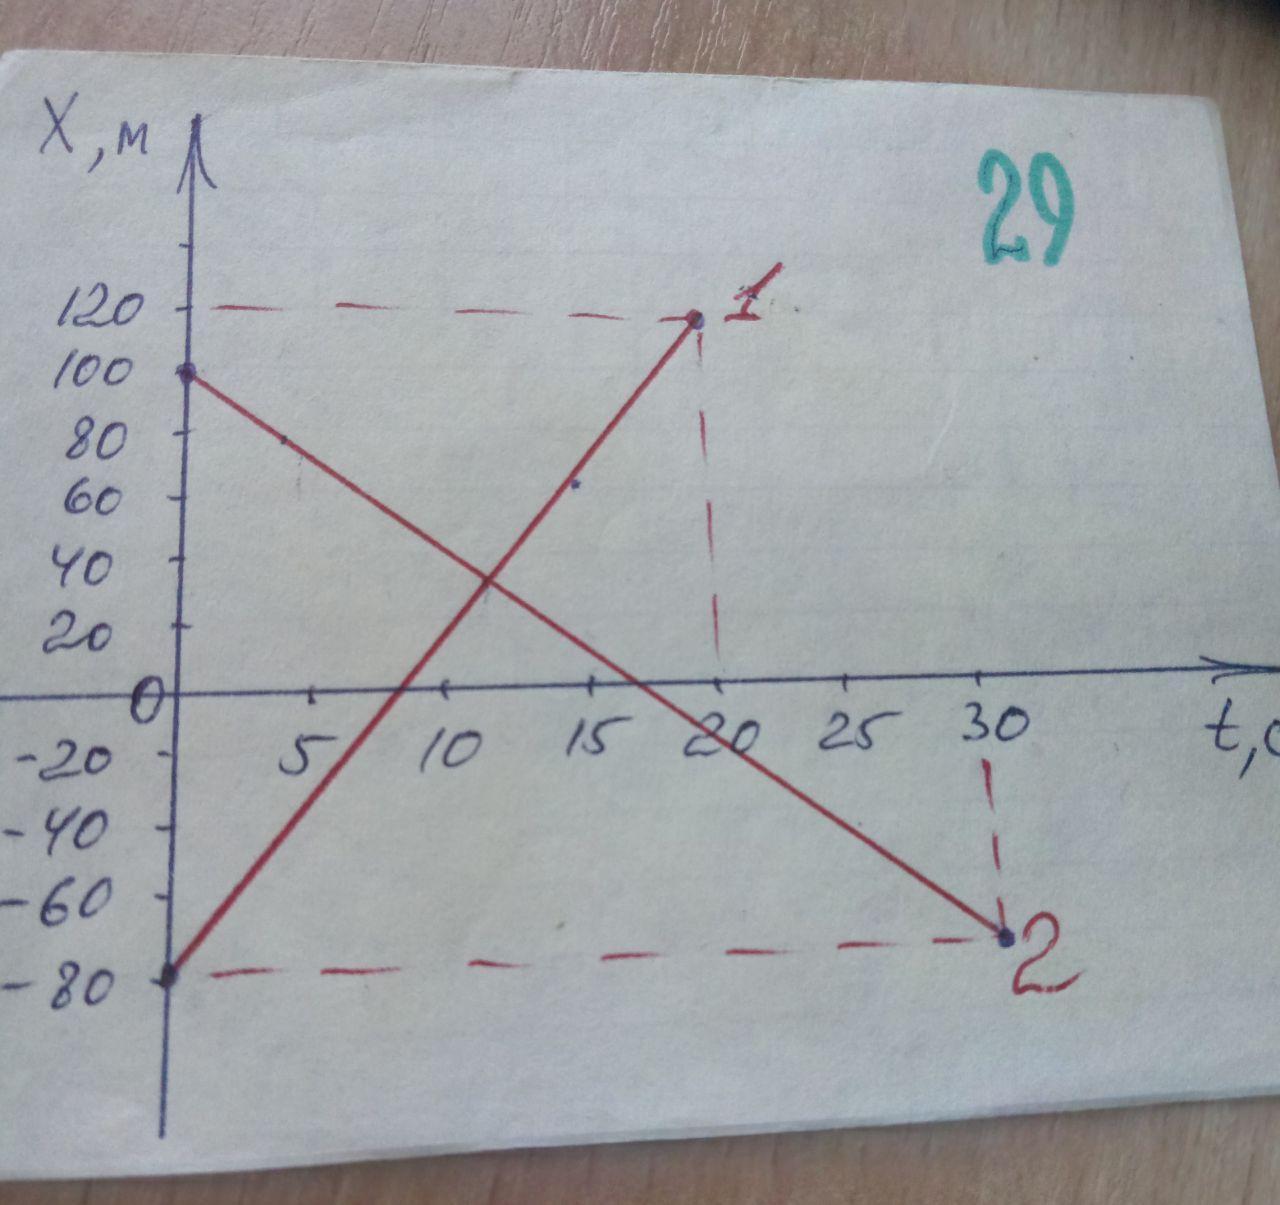 X, м
29
120
1
100
80
60
40
20
0
5 10 15 20 25 30
t, с
-20
-40
-60
-80
2